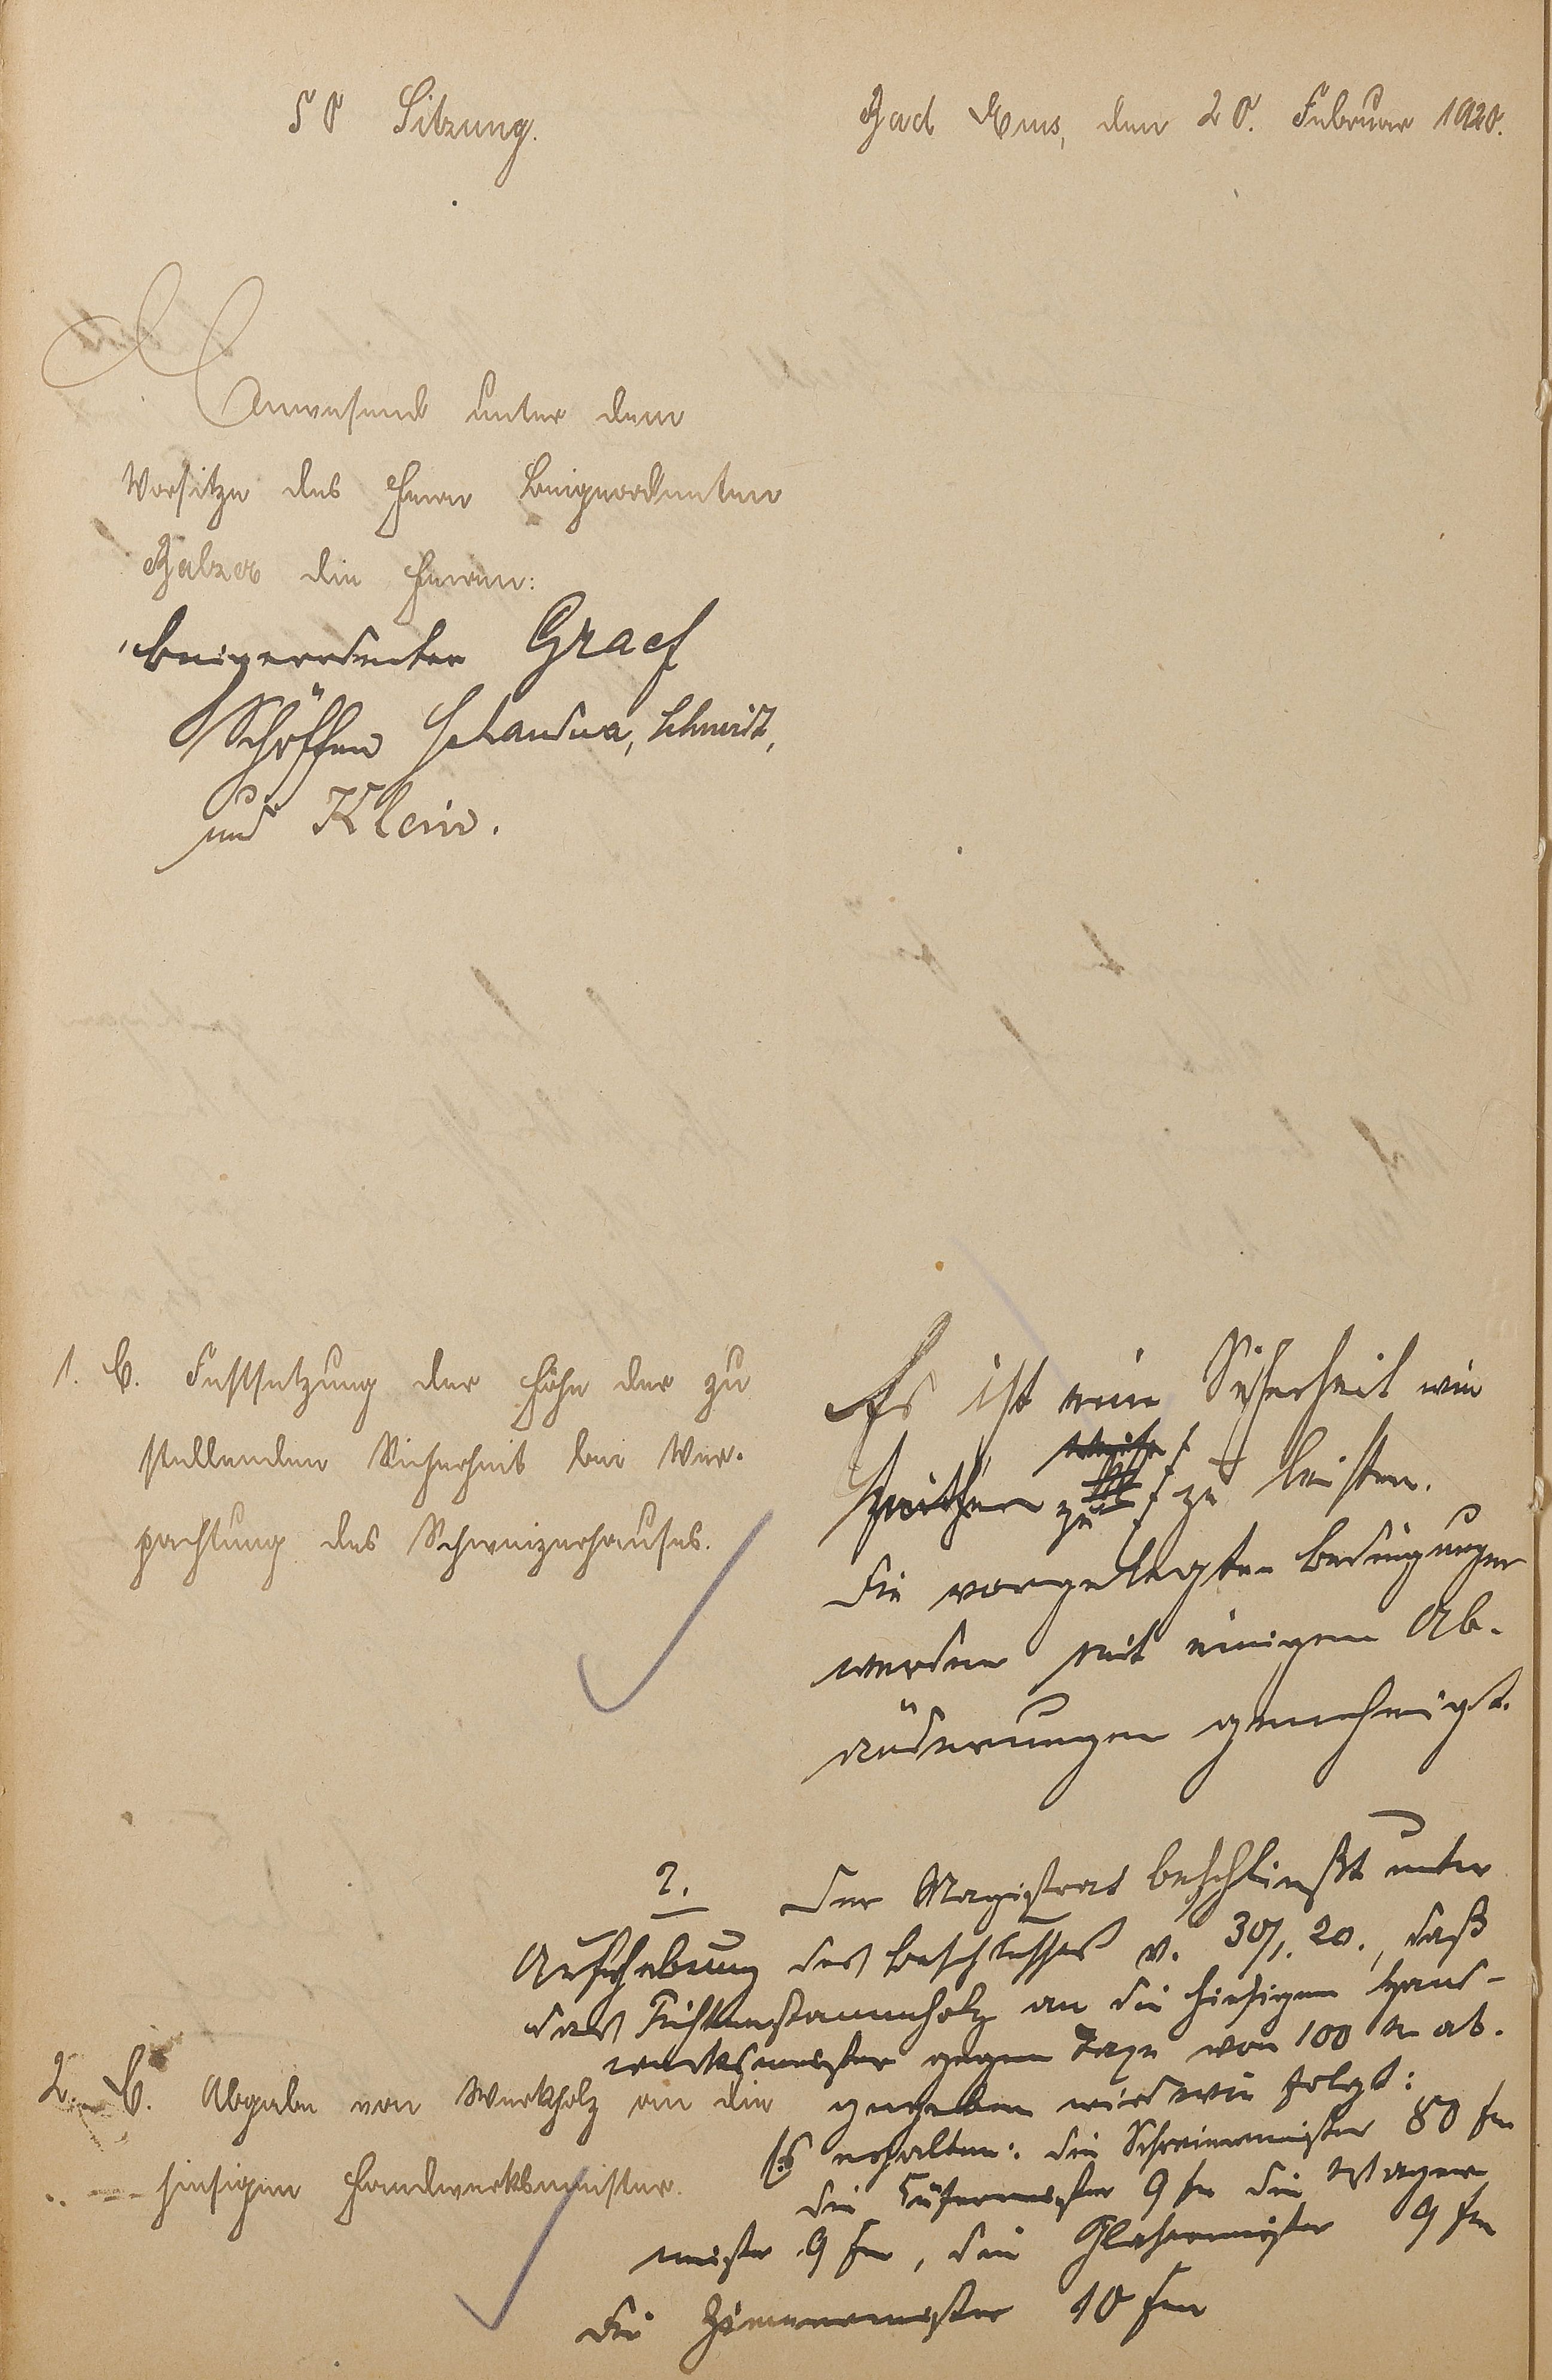 50 Sitzung.
Bad Ems, den 20. Februar 1920.
Anwesend unter dem
Vorsitze des Herrn Beigeordneten
Balzer die Herren:
Beigeordneter Graef
Schöffen Schmidt,
und Klein.
1. B. Festsetzung der Höhe der zu
stellenden Sicherheit bei Ver-
pachtung des Schweizerhauses.
Es ist eine Sicherheit wie
seither zu zu leisten.
Die vorgelegten Bedingungen
werden mit einigen Ab-
änderungen genehmigt.
2. Der Magistrat beschließt unter
Aufhebung des Beschlusses v. 30/1. 20., daß
das Fichtenstammholz an die hiesigen Hand-
werksmeister gegen Taxe von 100 M ab-
2. B. Abgabe von Werkholz an die
hiesigen Handwerksmeister.
gegeben wird wie folgt:
Es erhalten: die Schreinermeister 80 fm
die Küfermeister 9 fm die Wagner
meister 9 fm, die Glasermeister 9 fm
die Zimmermeister 10 fm